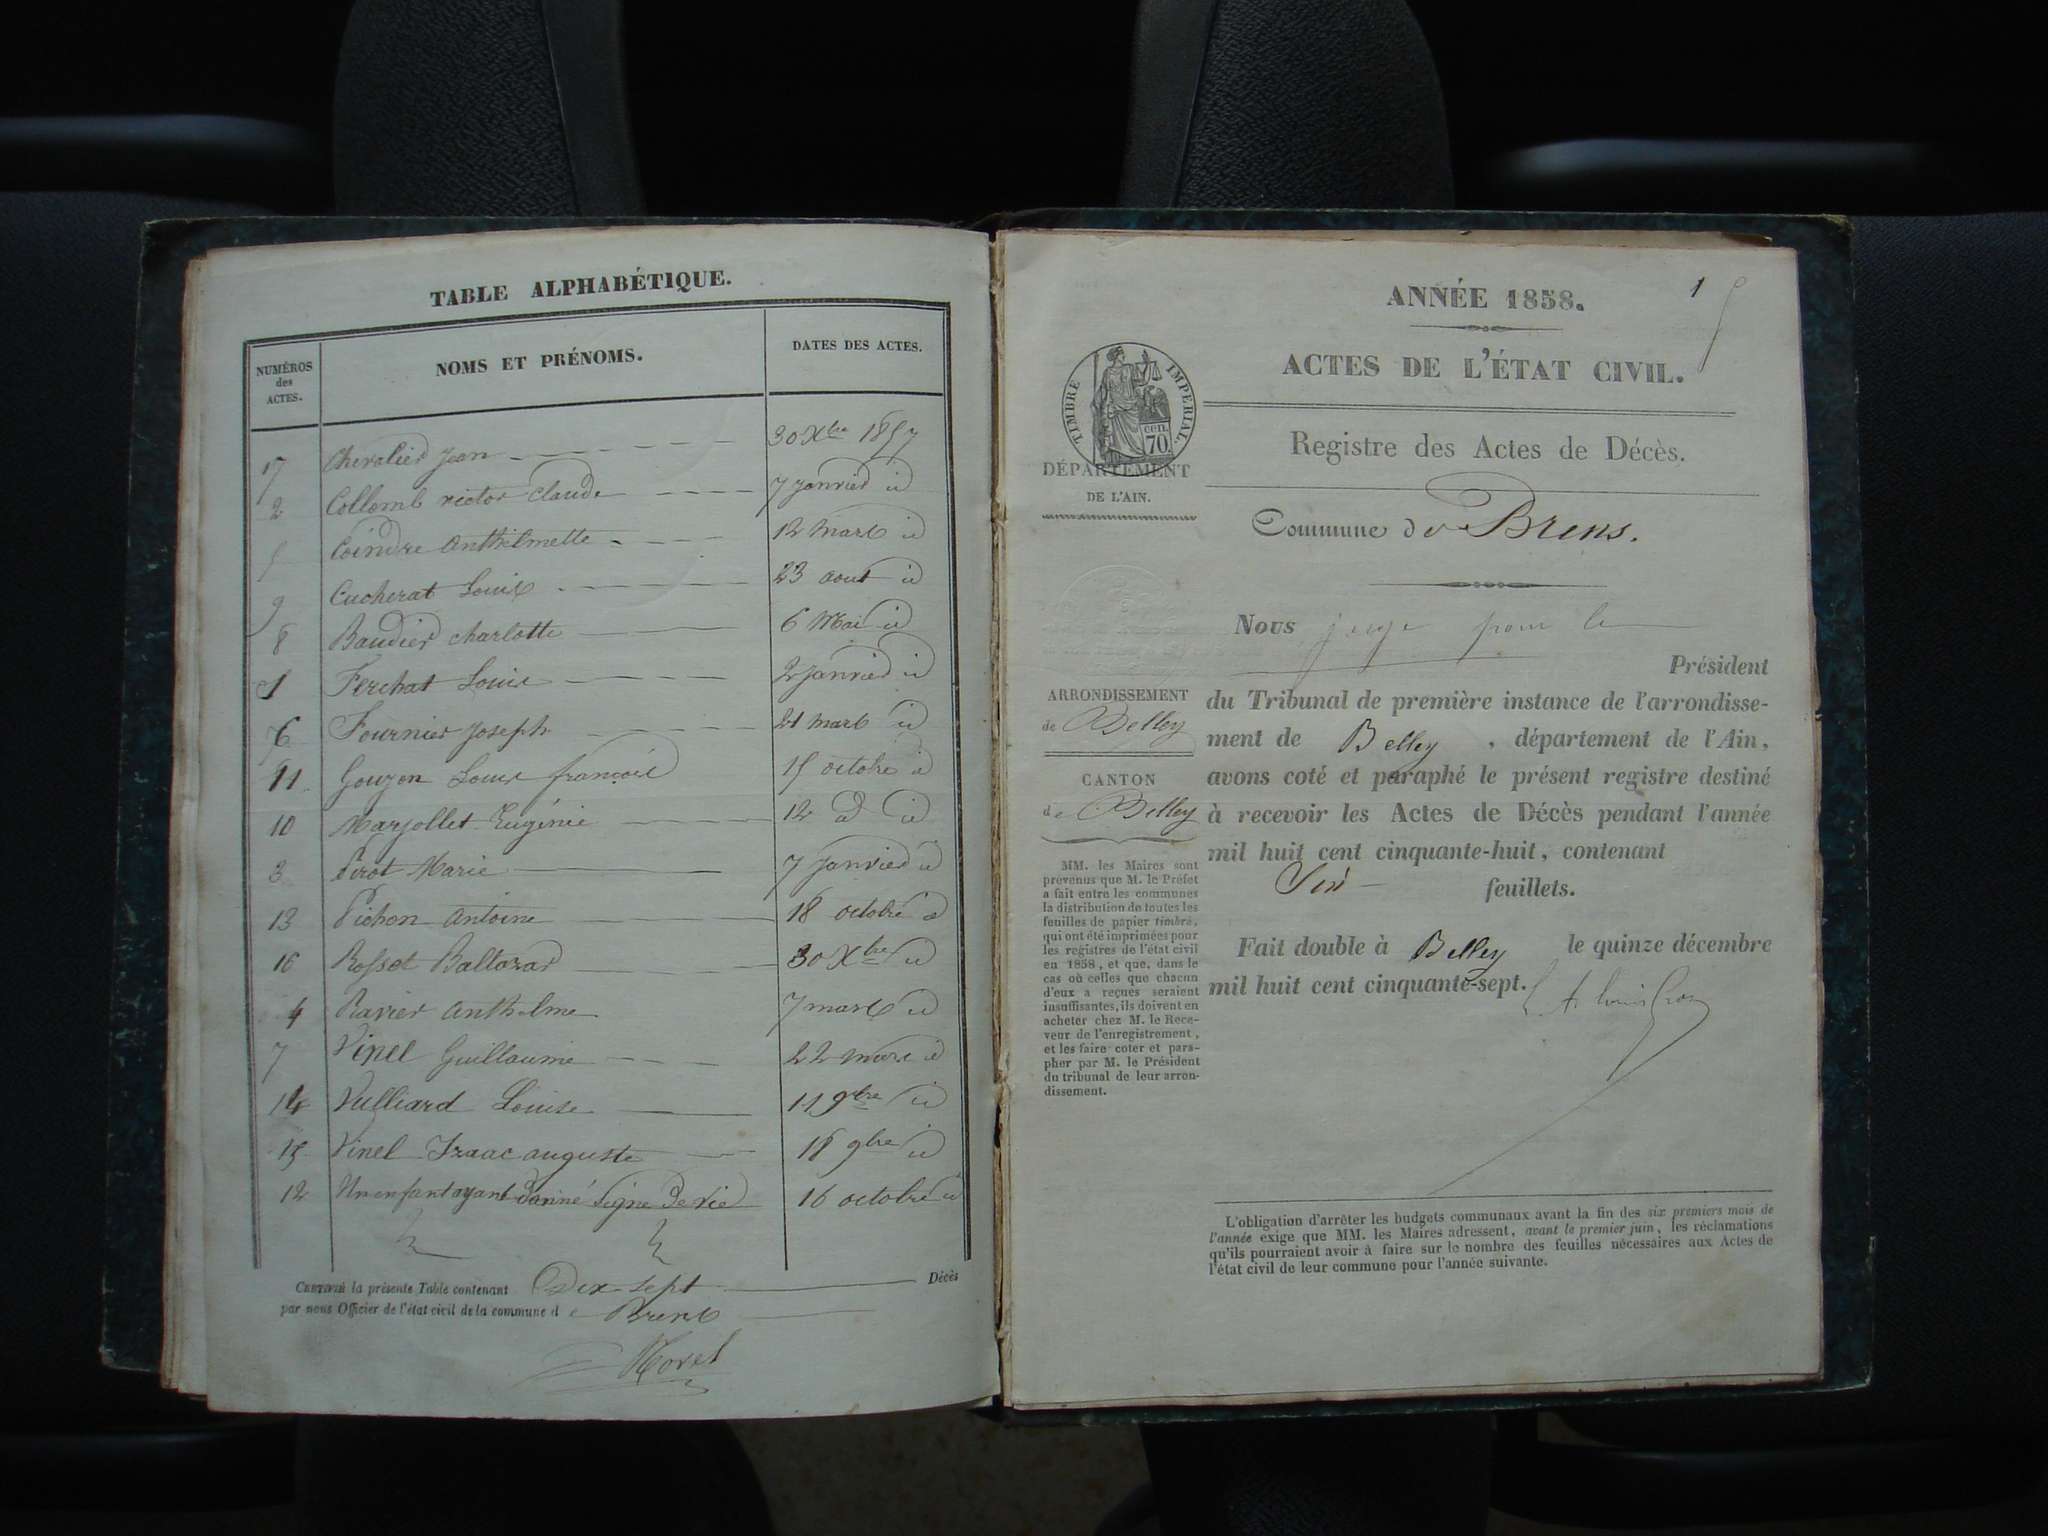 TABLE ALPHABÉTIQUE.
NUMÉROS des ACTES.
NOMS ET PRÉNOMS.
DATES DES ACTES.
17 Chevalier Jean 30 Xbre 1857
2 Collomb victor Claude 7 janvier id
5 Coindre Anthelmette 12 mars id
9 Cucherat Louis 23 aout id
8 Baudier charlotte 6 Mai id
1 Ferchat Louis 2 janvier id
6 Fournier Joseph 21 mars id
11 Goujon Louis françois 15 octobre id
10 Marjollet Eugénie 12 d id
3 Pirot Marie 7 Janvier id
13 Pichon Antoine 18 octobre id
16 Rosset Baltazar 30 Xbre id
4 Ravier Anthelme 7 mars id
7 Vinel Guillaume 22 mars id
14 Vulliard Louise 11 9bre id
15 Vinel Izaac auguste 18 9bre id
12 Un enfant ayant donné signe de vie 16 octobre id
CERTIFIÉ la présente Table contenant Dix sept Décès
par nous Officier de l'état civil de la commune de Brens
Morel
1
ANNÉE 1858.
ACTES DE L'ÉTAT CIVIL.
TIMBRE IMPÉRIAL.
cen. 70
DÉPARTEMENT
DE L'AIN.
Registre des Actes de Décès.
Commune de Brens.
ARRONDISSEMENT
de Belley
CANTON
de Belley
MM. les Maires sont
prévenus que M. le Préfet
a fait entre les communes
la distribution de toutes les
feuilles de papier timbré,
qui ont été imprimées pour
les registres de l'état civil
en 1858, et que, dans le
cas où celles que chacun
d'eux a reçues seraient
insuffisantes, ils doivent en
acheter chez M. le Rece-
veur de l'enregistrement,
et les faire coter et para-
pher par M. le Président
du tribunal de leur arron-
dissement.
NOUS juge pour le
Président
du Tribunal de première instance de l'arrondisse-
ment de Belley, département de l'Ain,
avons coté et paraphé le présent registre destiné
à recevoir les Actes de Décès pendant l'année
mil huit cent cinquante-huit, contenant
Six feuillets.
Fait double à Belley le quinze décembre
mil huit cent cinquante-sept.
L'obligation d'arrêter les budgets communaux avant la fin des six premiers mois de
l'année exige que MM. les Maires adressent, avant le premier juin, les réclamations
qu'ils pourraient avoir à faire sur le nombre des feuilles nécessaires aux Actes de
l'état civil de leur commune pour l'année suivante.